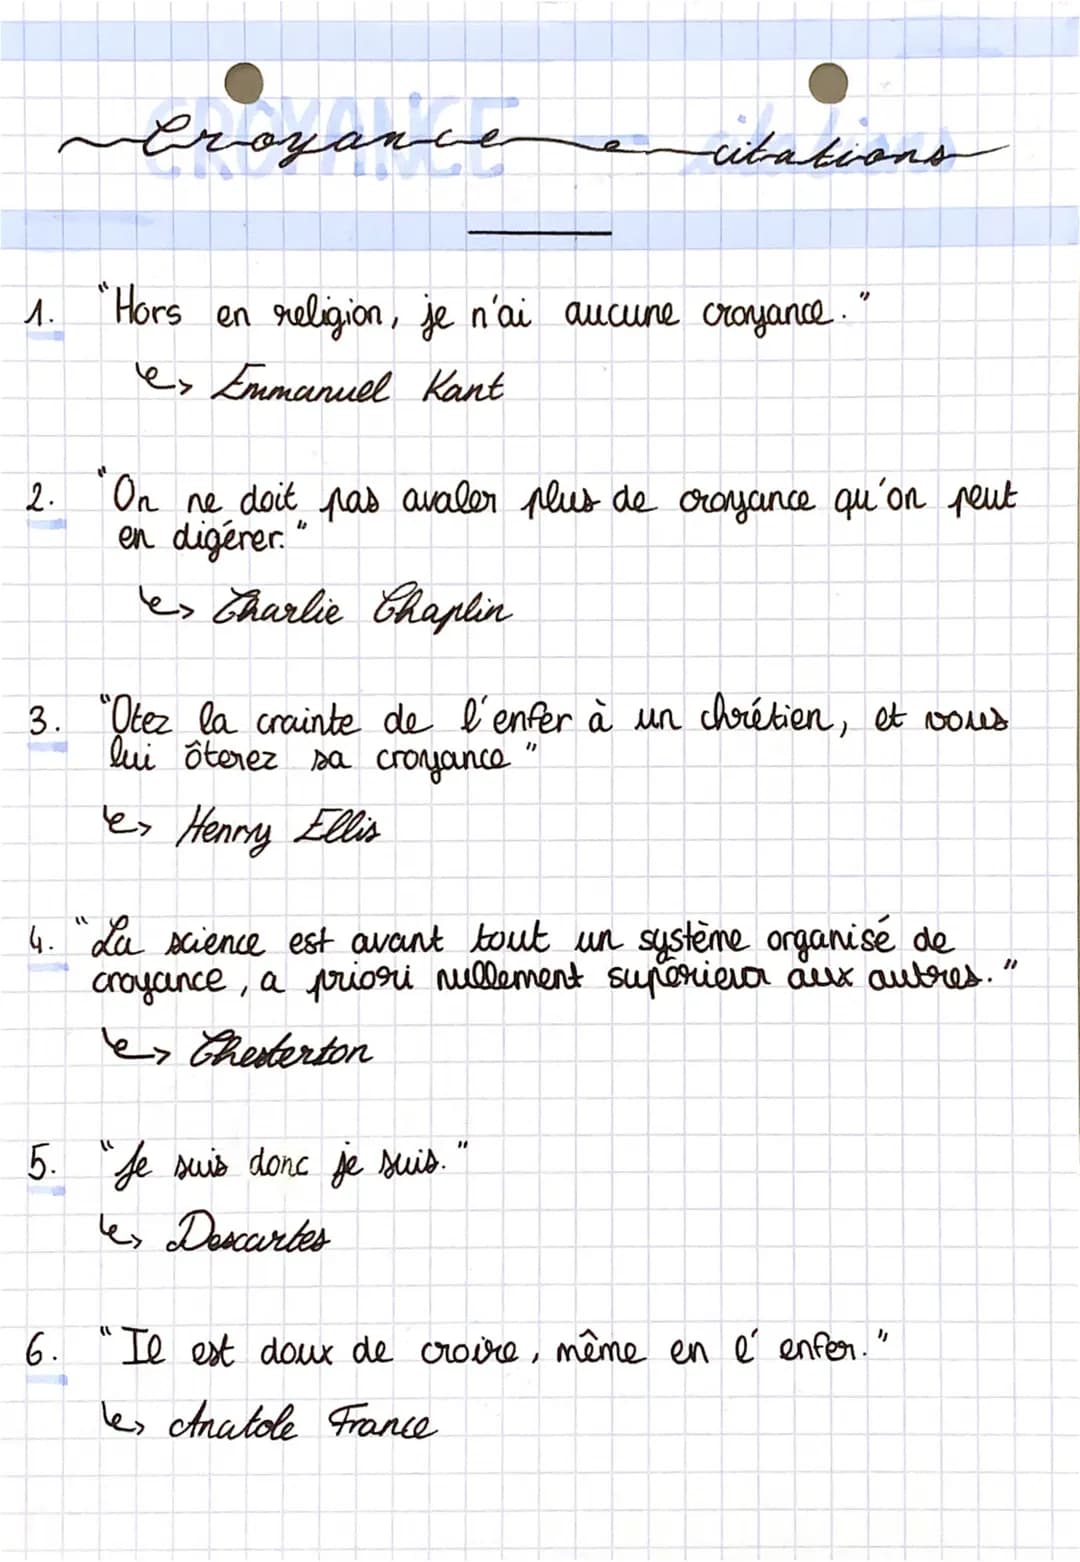 Croyance citations
1. "Hors en religion, je n'ai aucune croyance."
↳ Emmanuel Kant
2. "On ne doit pas avaler plus de croyance qu'on peut
en digérer."
↳ Charlie Chaplin
3. "Otez la crainte de l'enfer à un chrétien, et vous
lui ôterez sa croyance"
↳ Henry Ellis
4. "La science est avant tout un système organisé de
croyance, a priori nullement supérieur aux autres."
↳ Chesterton
5. "Je suis donc je suis."
↳ Descartes
6. "Il est doux de croire, même en l'enfer."
↳ Anatole France